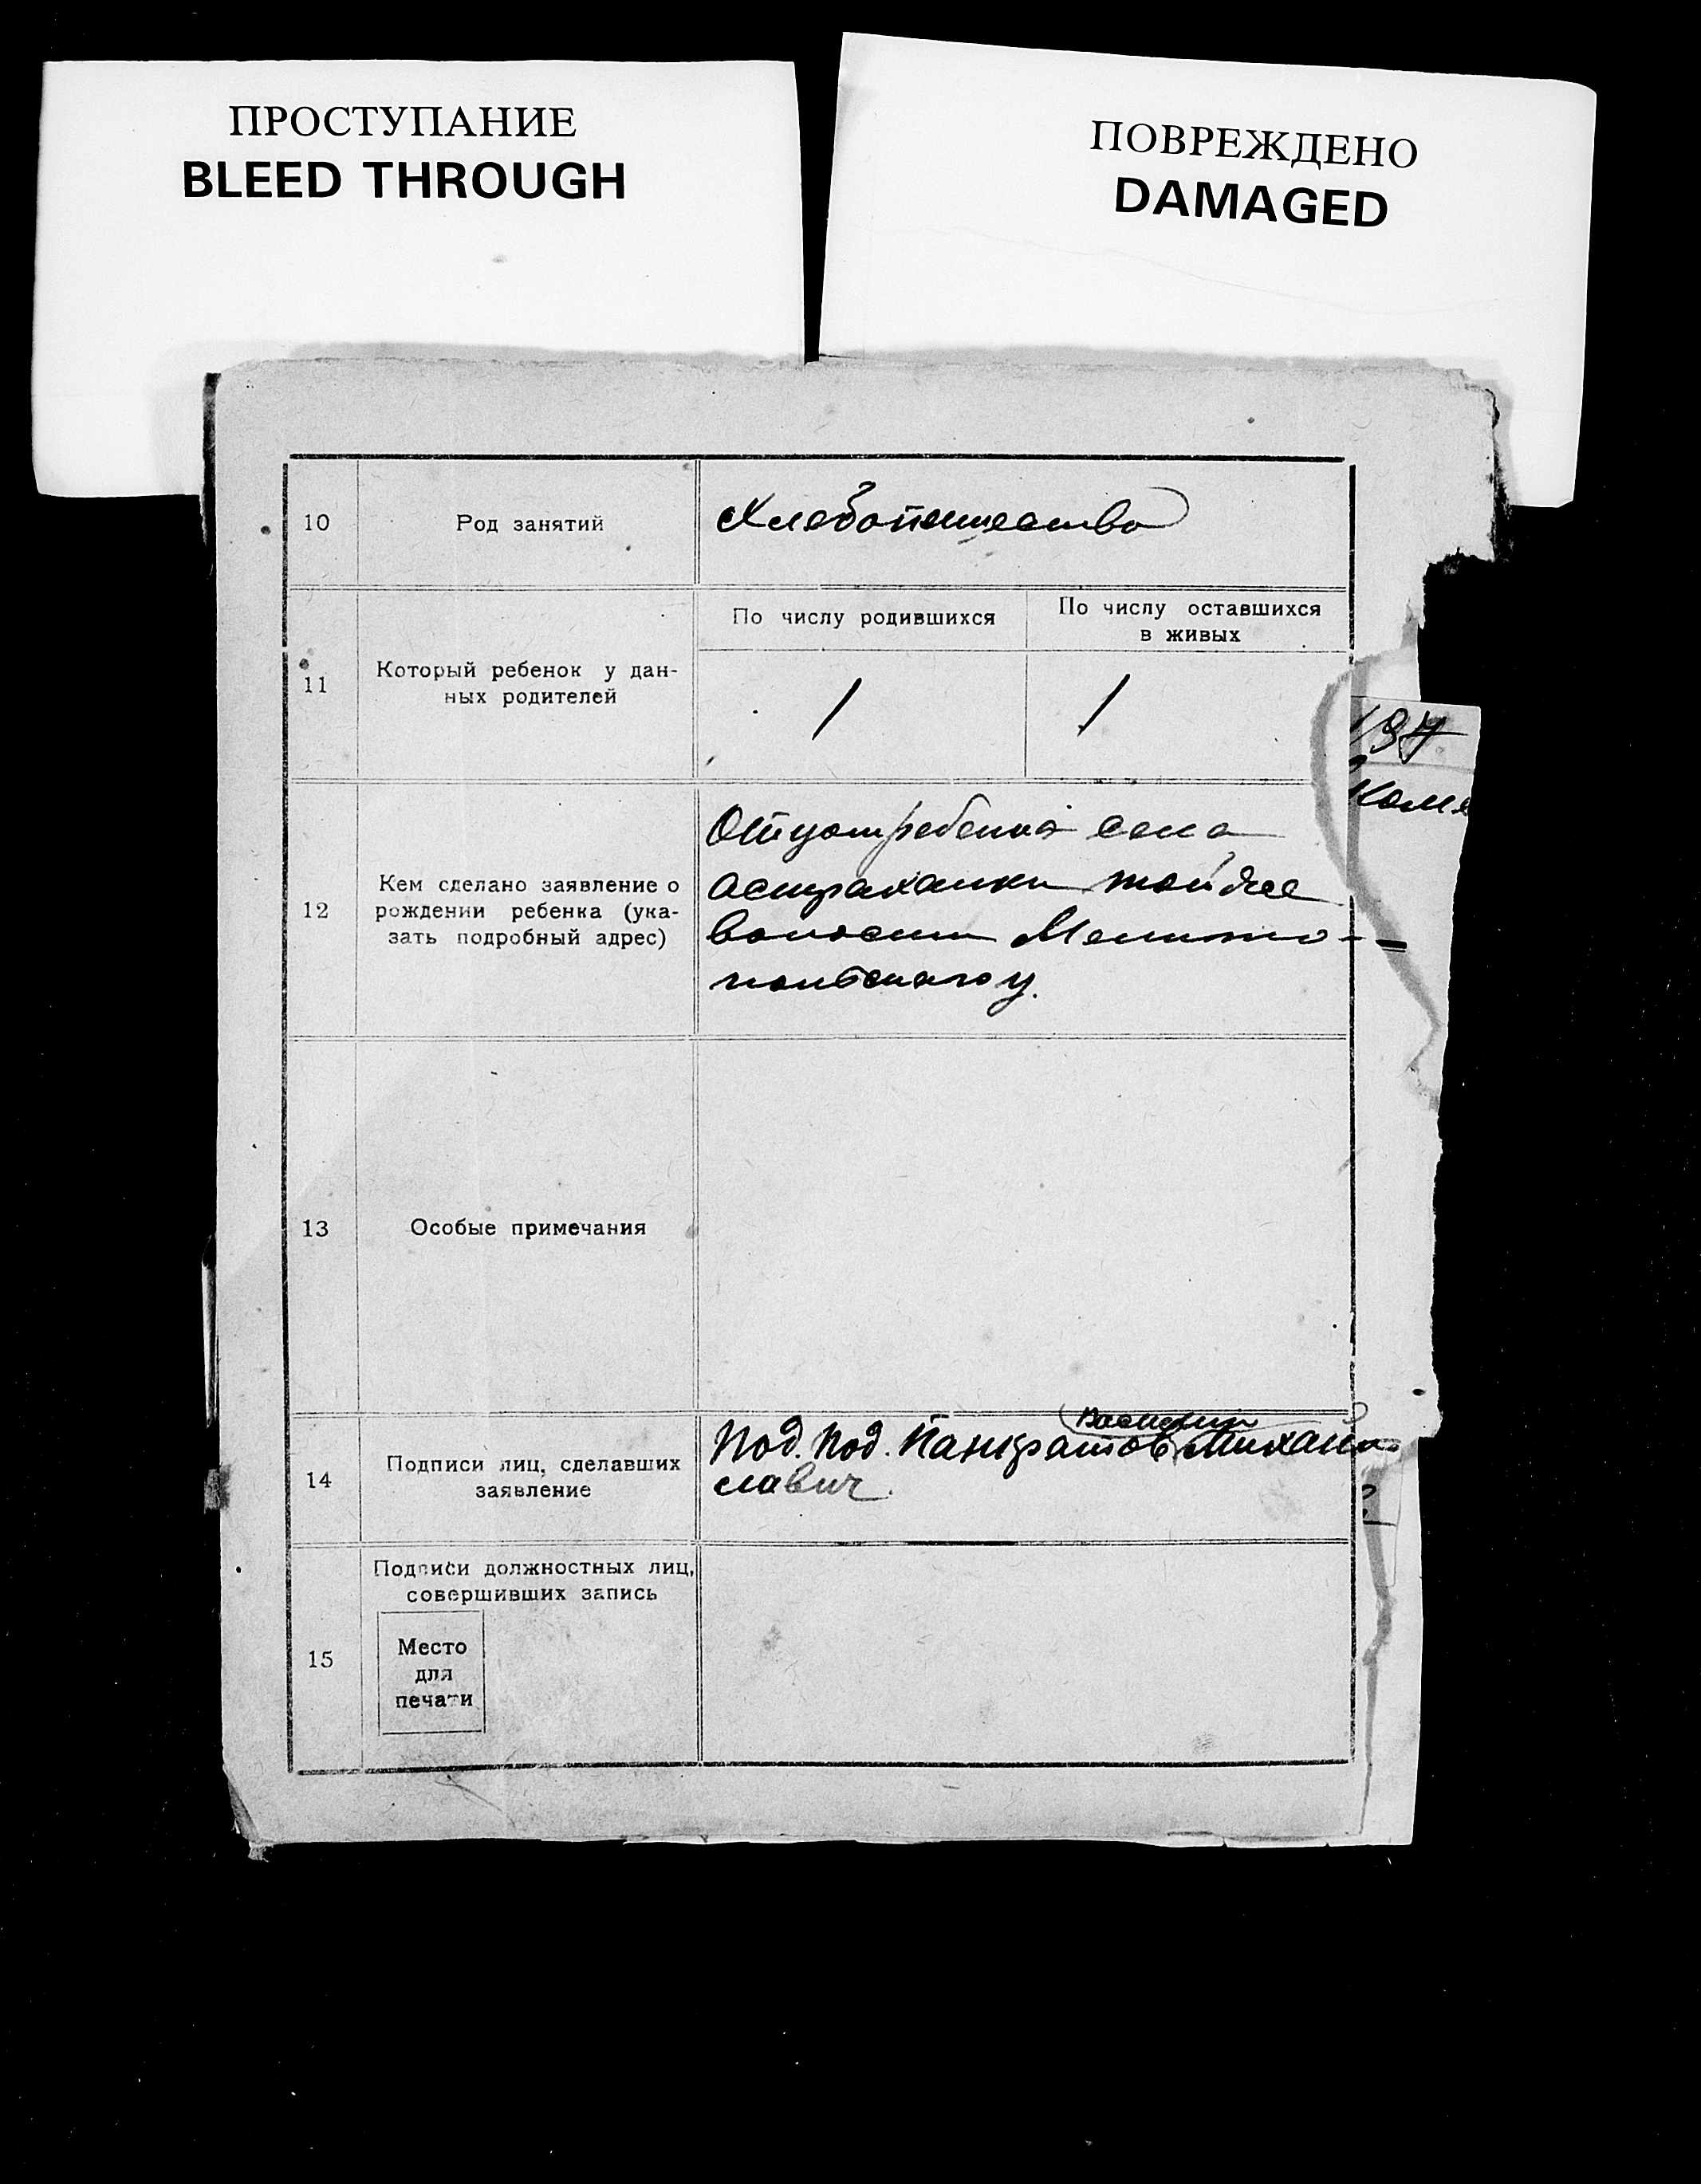 ПРОСТУПАНИЕ
BLEED THROUGH
ПОВРЕЖДЕНО
DAMAGED
10
Род занятий
Хлебопашество
11
Который ребенок у дан-
ных родителей
По числу родившихся
По числу оставшихся
в живых
1
1
12
Кем сделано заявление о
рождении ребенка (ука-
зать подробный адрес)
Отцом ребенка села
Астраханки той же
волости Мелито-
польского у.
13
Особые примечания
14
Подписи лиц, сделавших
заявление
Василий
Под. Под. Панкратов Михай
славич.
15
Подписи должностных лиц,
совершивших запись
Место
для
печати